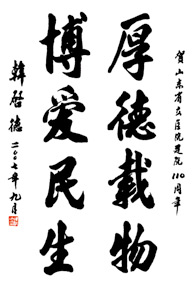 贺山东省立医院建院110周年
厚德载物
博爱民生
韩启德
二〇〇七年九月